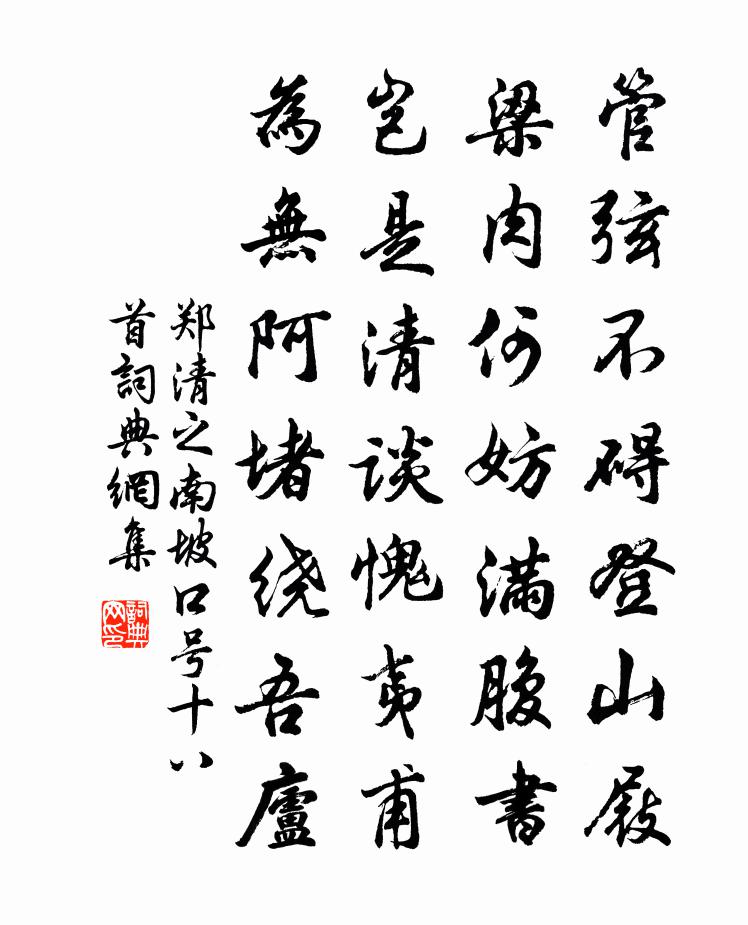 管弦不碍登山屐
梁肉何妨满腹書
岂是清谈愧夷甫
為無阿堵绕吾廬
郑清之南坡口号十八
首詞典網集
詞典网印